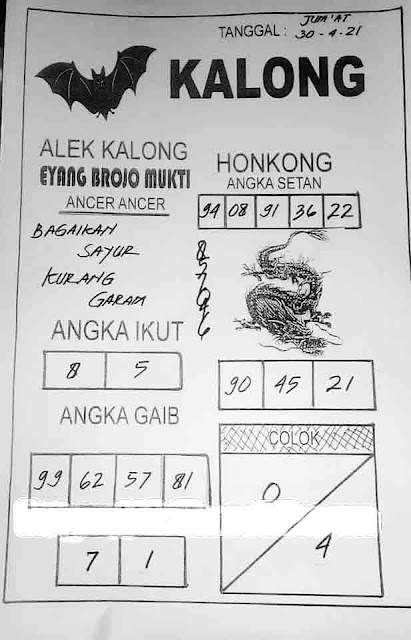 TANGGAL : JUM'AT
30 - 4 - 21
KALONG
ALEK KALONG
EYANG BROJO MUKTI
ANCER ANCER
BAGAIKAN
SAYUR
KURANG
GARAM
HONKONG
ANGKA SETAN
94 08 91 36 22
8
5
7
0
4
6
ANGKA IKUT
8 5
90 45 21
ANGKA GAIB
99 62 57 81
7 1
COLOK
0
4